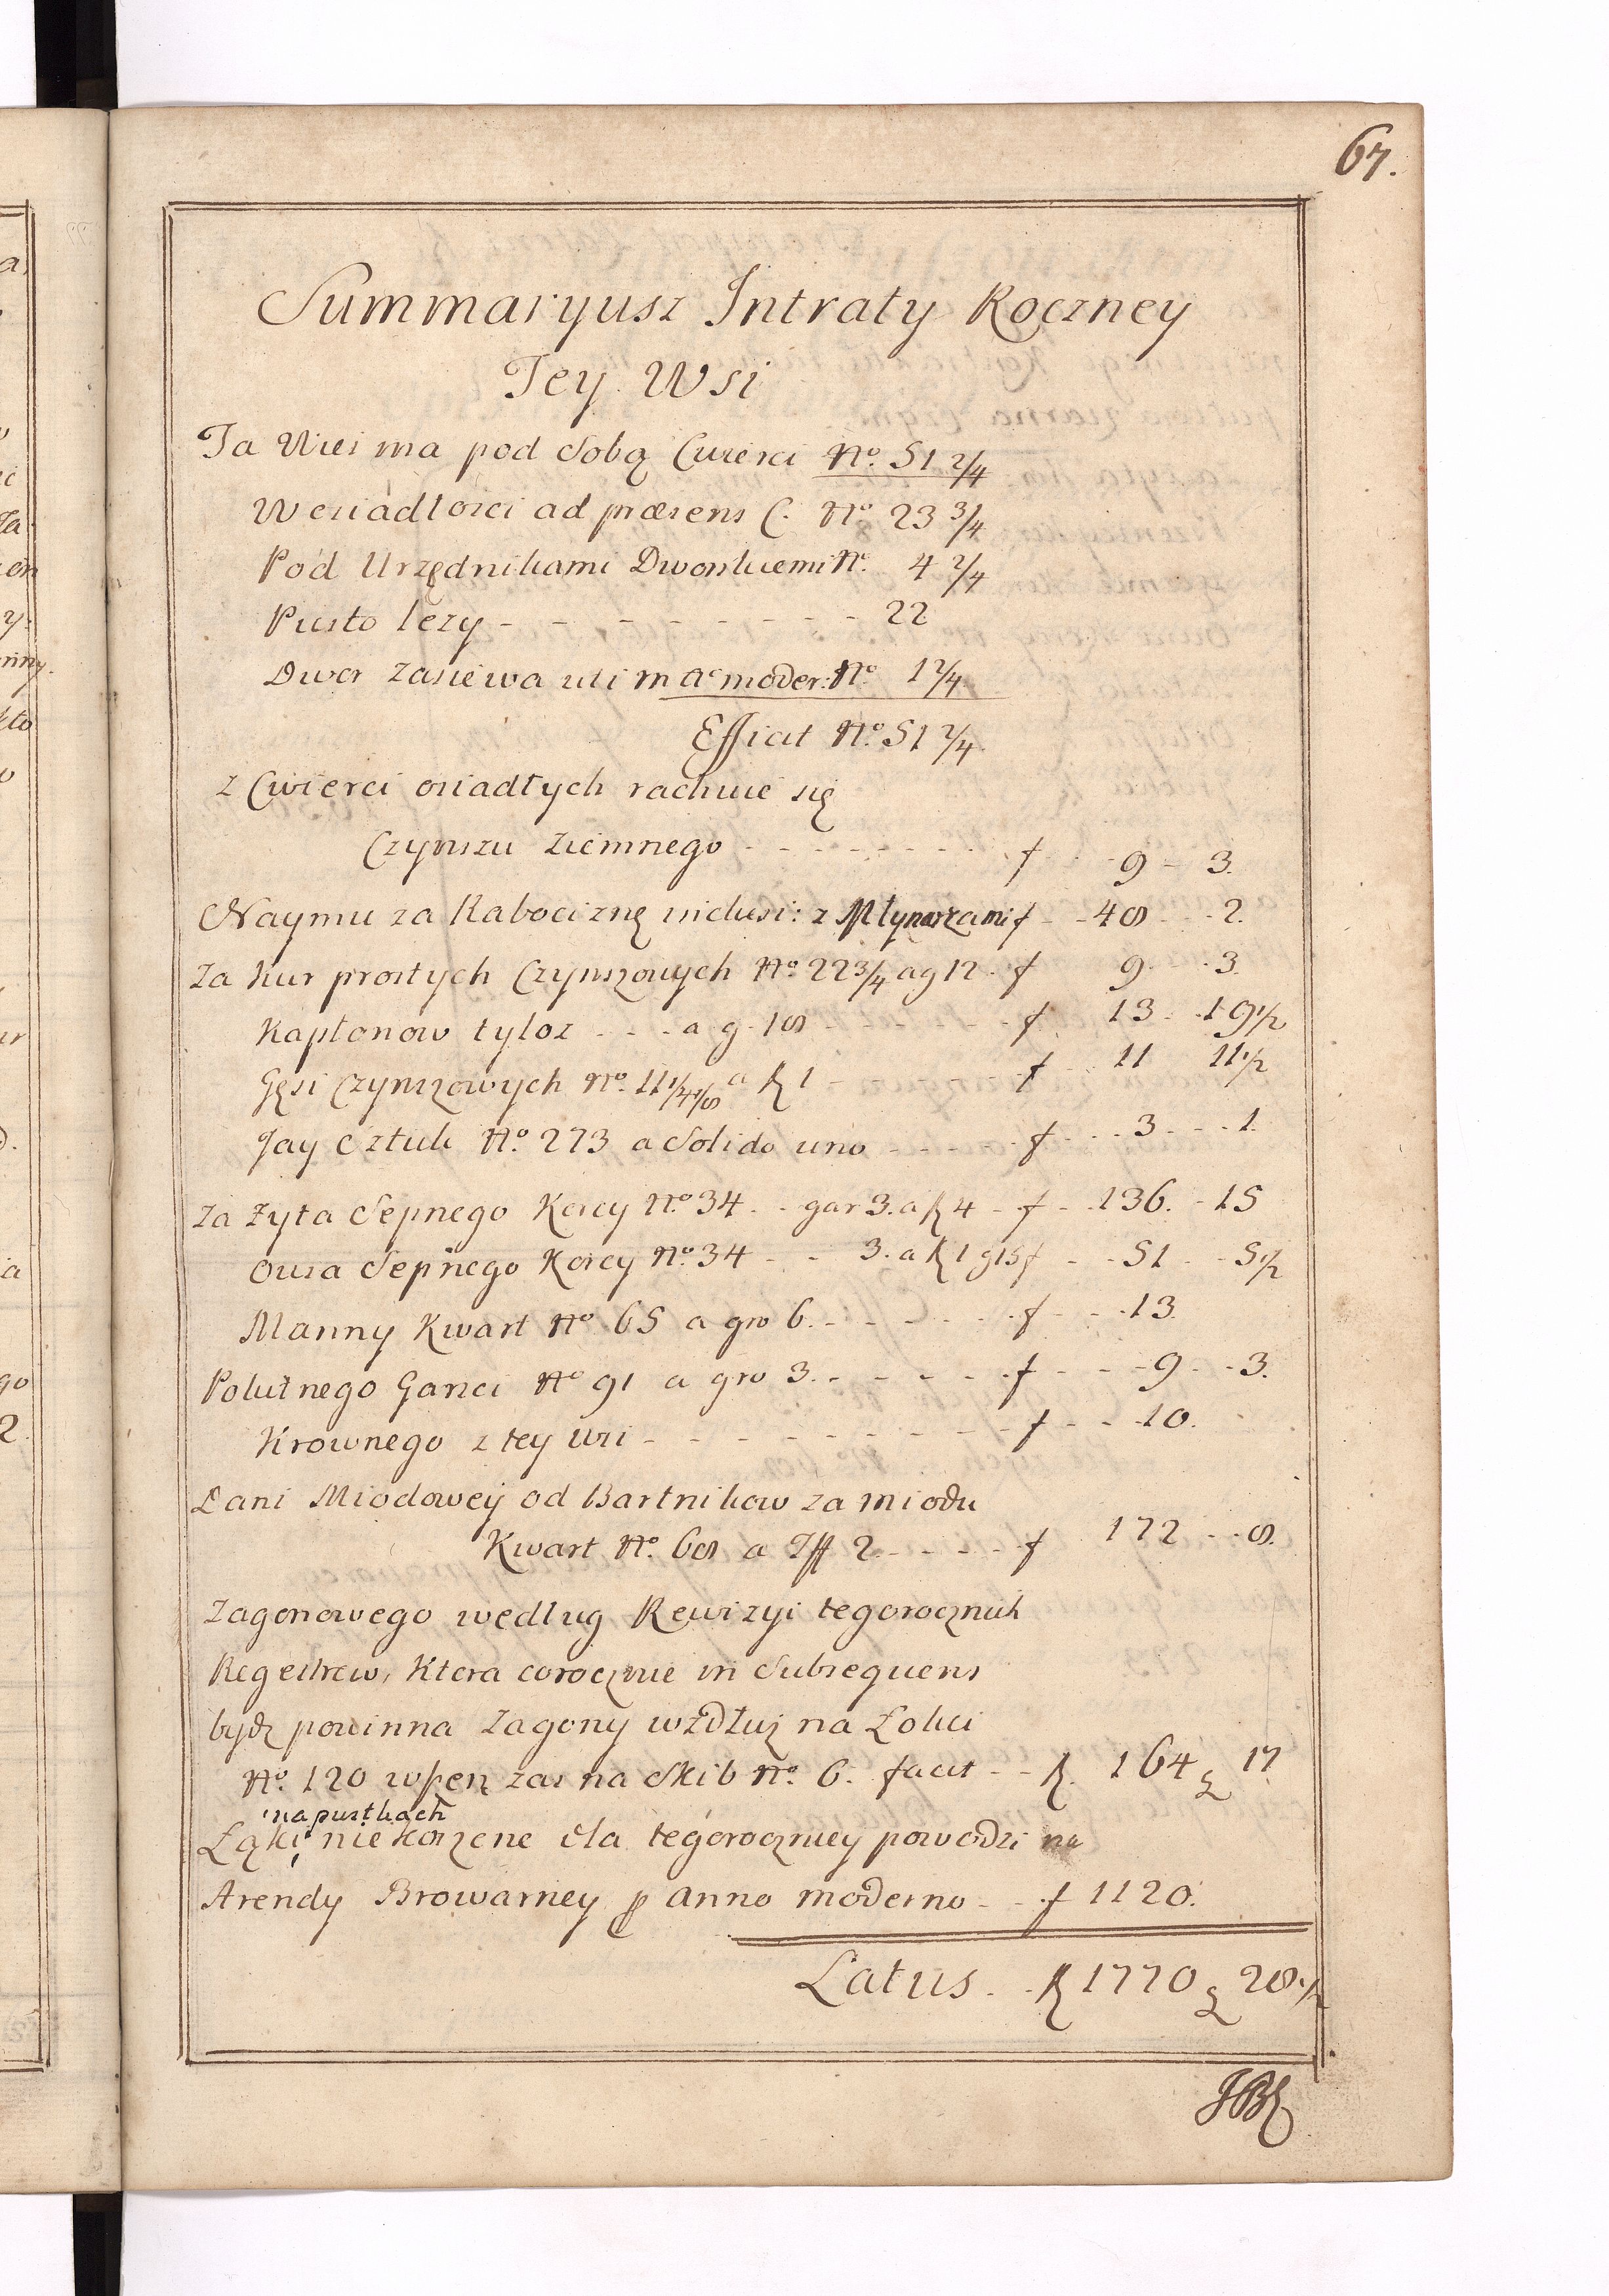 67.
Summaryusz Intraty Roczney
Tey Wsi
Ta Wieś ma pod Sobą Cwierci No. 51 2/4
W osiadłosci ad præsens C. No 23 3/4
Pod Urzędnikami Dworskiemi No. 4 2/4
Pusto leży - - - - - - - 22
Dwor zasiewa wsi m Ao moder: No 1 2/4
Efficit No. 51 2/4
z Cwierci osiadłych rachuie się
Czynszu Ziemnego - - - - - - - f 9 - 3.
Naymu za Rabociznę inclusi: z Młynarzami f - - 48 - - 2.
Za Kur prostych Czynszowych No. 22 3/4 a g 12 - f 9 - - 3.
Kapłonow tyloz - - - a g. 18 - - - - - f 13 - - 19 1/2
Gęsi Czynszowych No. 11 1/4 1/8 a zł 1 - - - f 11 11 1/2
Jay Sztuk No. 273 a Solido uno - - - - f - - 3 - - 1.
Za Zyta Sepnego Korcy No. 34 - - gar 3. a zł 4 - f - - 136. - 15
Owsa Sepnego Korcy No. 34 - - 3. a zł 1 g 15 f - - 51 - - 5 1/2
Manny Kwart No 65 a gro 6. - - - - - f - - 13.
Polutnego Garnci No 91 a gro 3. - - - - f - - 9 - - 3.
Krownego z tey wsi - - - - - - - f - - 10.
Dani Miodowey od Bartnikow za miodu
Kwart No. 68 a 2. - - - - f 172 - - 8.
Zagonowego według Rewizyi tegorocznich
Regestrow, Ktora corocznie in Subsequens
bydz powinna Zagony wzdłuz na Łokci
No. 120 wszerz zas na Skib No. 6. facit - - zł. 164 g 17
na pustkach
Łąki nie koszene dla tegoroczney powodzi
Arendy Browarney p anno moderno - - f 1120.
Latus - - zł 1770 g 28 1/2